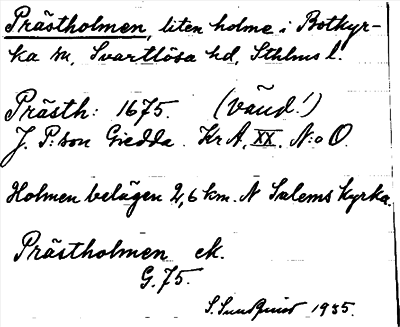 Prästholmen, liten holme i Botkyr-
ka sn, Svartlösa hd, Sthlms l.
Prästh: 1675. (Vänd!)
J. P:son Giedda. Kr A, XX. N:o O.
Holmen belägen 2,6 km. N Salems kyrka.
Prästholmen ek.
G. 75.
S. Sundquist 1935.